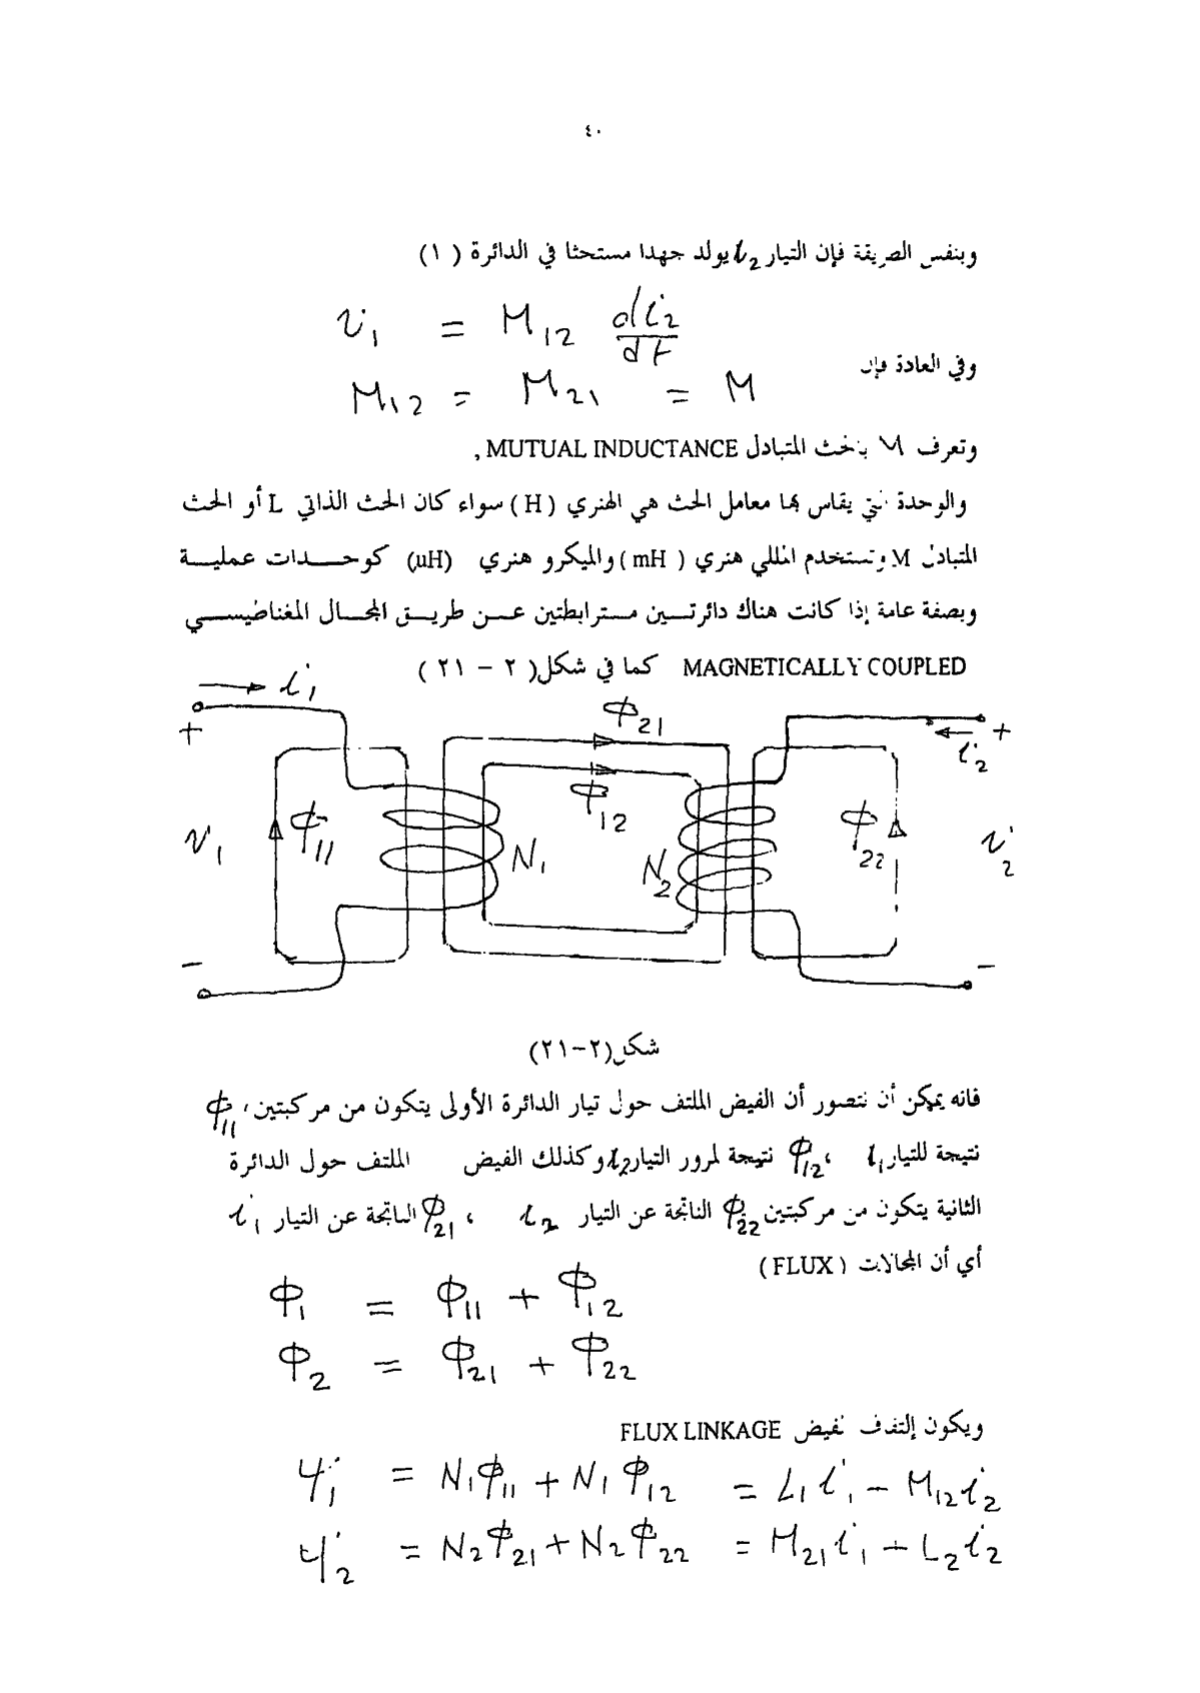 ٤٠
وبنفس الطريقة فإن التيار i₂ يولد جهدا مستحثا في الدائرة ( ١ )
v₁ = M₁₂ di₂/dt
وفي العادة فإن
M₁₂ = M₂₁ = M
وتعرف M بالحث المتبادل MUTUAL INDUCTANCE ,
والوحدة التي يقاس بها معامل الحث هي الهنري ( H ) سواء كان الحث الذاتي L أو الحث
المتبادل M وتستخدم المللي هنري ( mH ) والميكرو هنري (uH) كوحــدات عمليــة
وبصفة عامة إذا كانت هناك دائرتــين مــترابطتين عــن طريــق المجــال المغناطيســي
MAGNETICALLY COUPLED كما في شكل( ٢ – ٢١ )
i₁
Φ₂₁
+ +
i₂
Φ₁₂
v₁ Φ₁₁ N₁ N₂ Φ₂₂ v₂
– –
شكل(٢-٢١)
فانه يمكن أن نتصور أن الفيض الملتف حول تيار الدائرة الأولى يتكون من مركبتين، Φ₁₁
نتيجة للتيار i₁ ، Φ₁₂ نتيجة لمرور التيار i₂ وكذلك الفيض الملتف حول الدائرة
الثانية يتكون من مركبتين Φ₂₂ الناتجة عن التيار i₂ ، Φ₂₁ الناتجة عن التيار i₁
أي أن المجالات ( FLUX )
Φ₁ = Φ₁₁ + Φ₁₂
Φ₂ = Φ₂₁ + Φ₂₂
ويكون إلتفاف الفيض FLUX LINKAGE
Ψ₁ = N₁Φ₁₁ + N₁Φ₁₂ = L₁i₁ – M₁₂i₂
Ψ₂ = N₂Φ₂₁ + N₂Φ₂₂ = M₂₁i₁ + L₂i₂